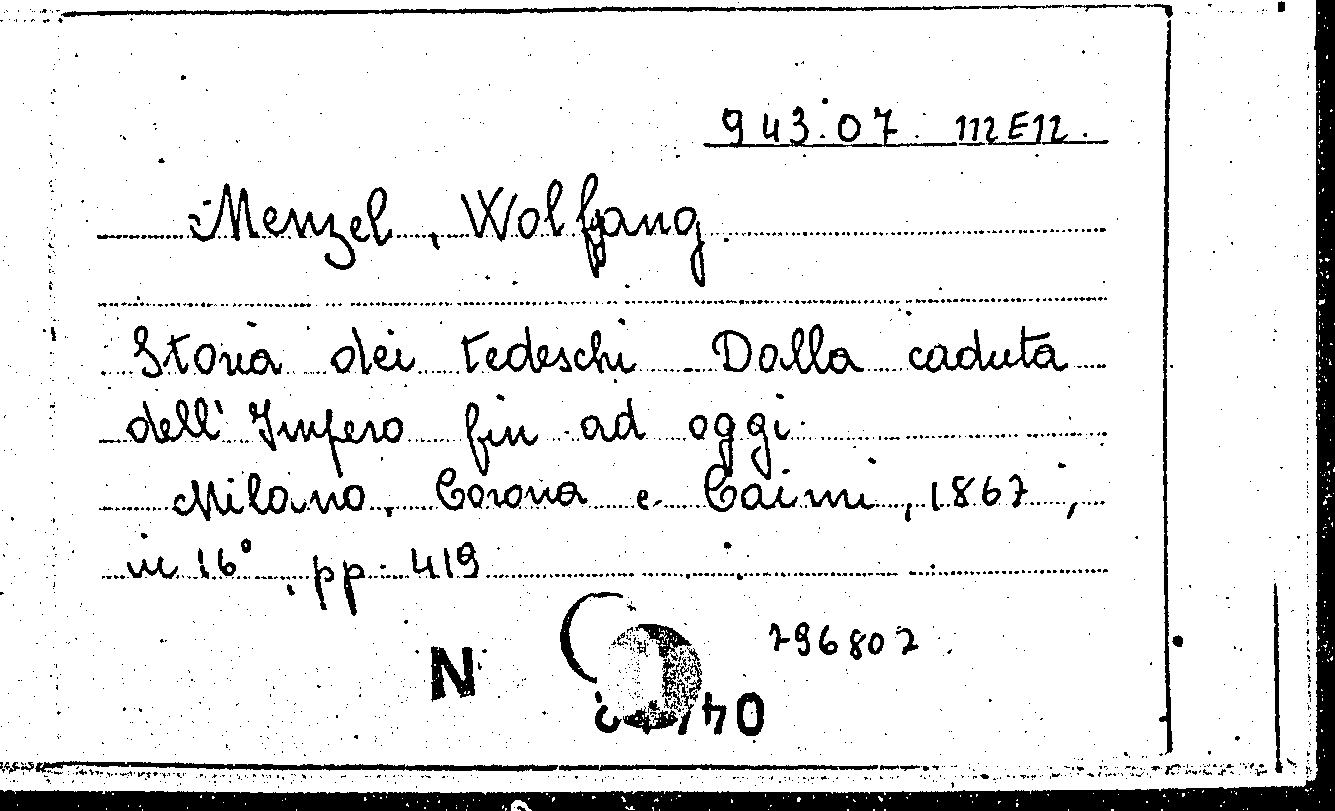 943.07. MEN.
Menzel, Wolfgang
Storia dei tedeschi Dalla caduta
dell'Impero fin ad oggi.
Milano, Corona e Caimi, 1867,
in 16°, pp. 419
796807
N